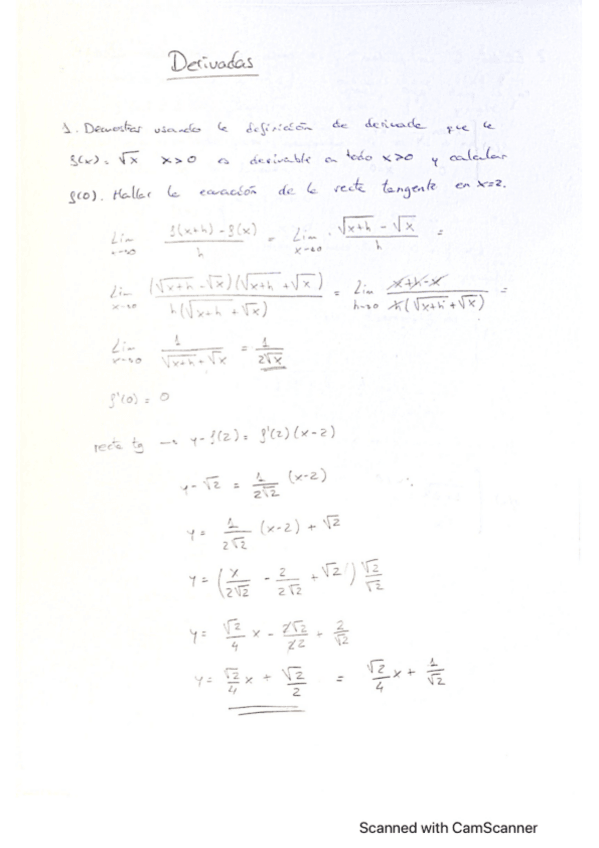 Derivadas
1. Demostrar usando la definición de derivada que la
f(x) = √x x>0 es derivable en todo x>0 y calcular
f(0). Hallar la ecuación de la recta tangente en x=2.
Lim x→0 f(x+h) - f(x) / h = Lim x→0 √x+h - √x / h =
Lim x→0 (√x+h - √x)(√x+h + √x) / h(√x+h + √x) = Lim h→0 x+h-x / h(√x+h + √x) =
Lim x→0 1 / √x+h + √x = 1 / 2√x
f'(0) = 0
recta tg → y - f(2) = f'(2)(x-2)
y - √2 = 1/2√2 (x-2)
y = 1/2√2 (x-2) + √2
y = (x/2√2 - 2/2√2 + √2) √2/√2
y = √2/4 x - 2√2/22 + 2/√2
y = √2/4 x + √2/2 = √2/4 x + 1/√2
Scanned with CamScanner